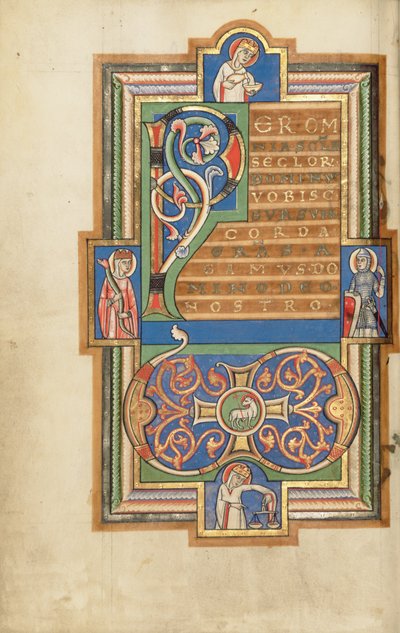 PER OM
NIA SCLA
SECLOR.
DOMINVS
VOBISC
SVRSVM
CORDA
GRAS A
GAMVS DO
MINO DEO
NOSTRO